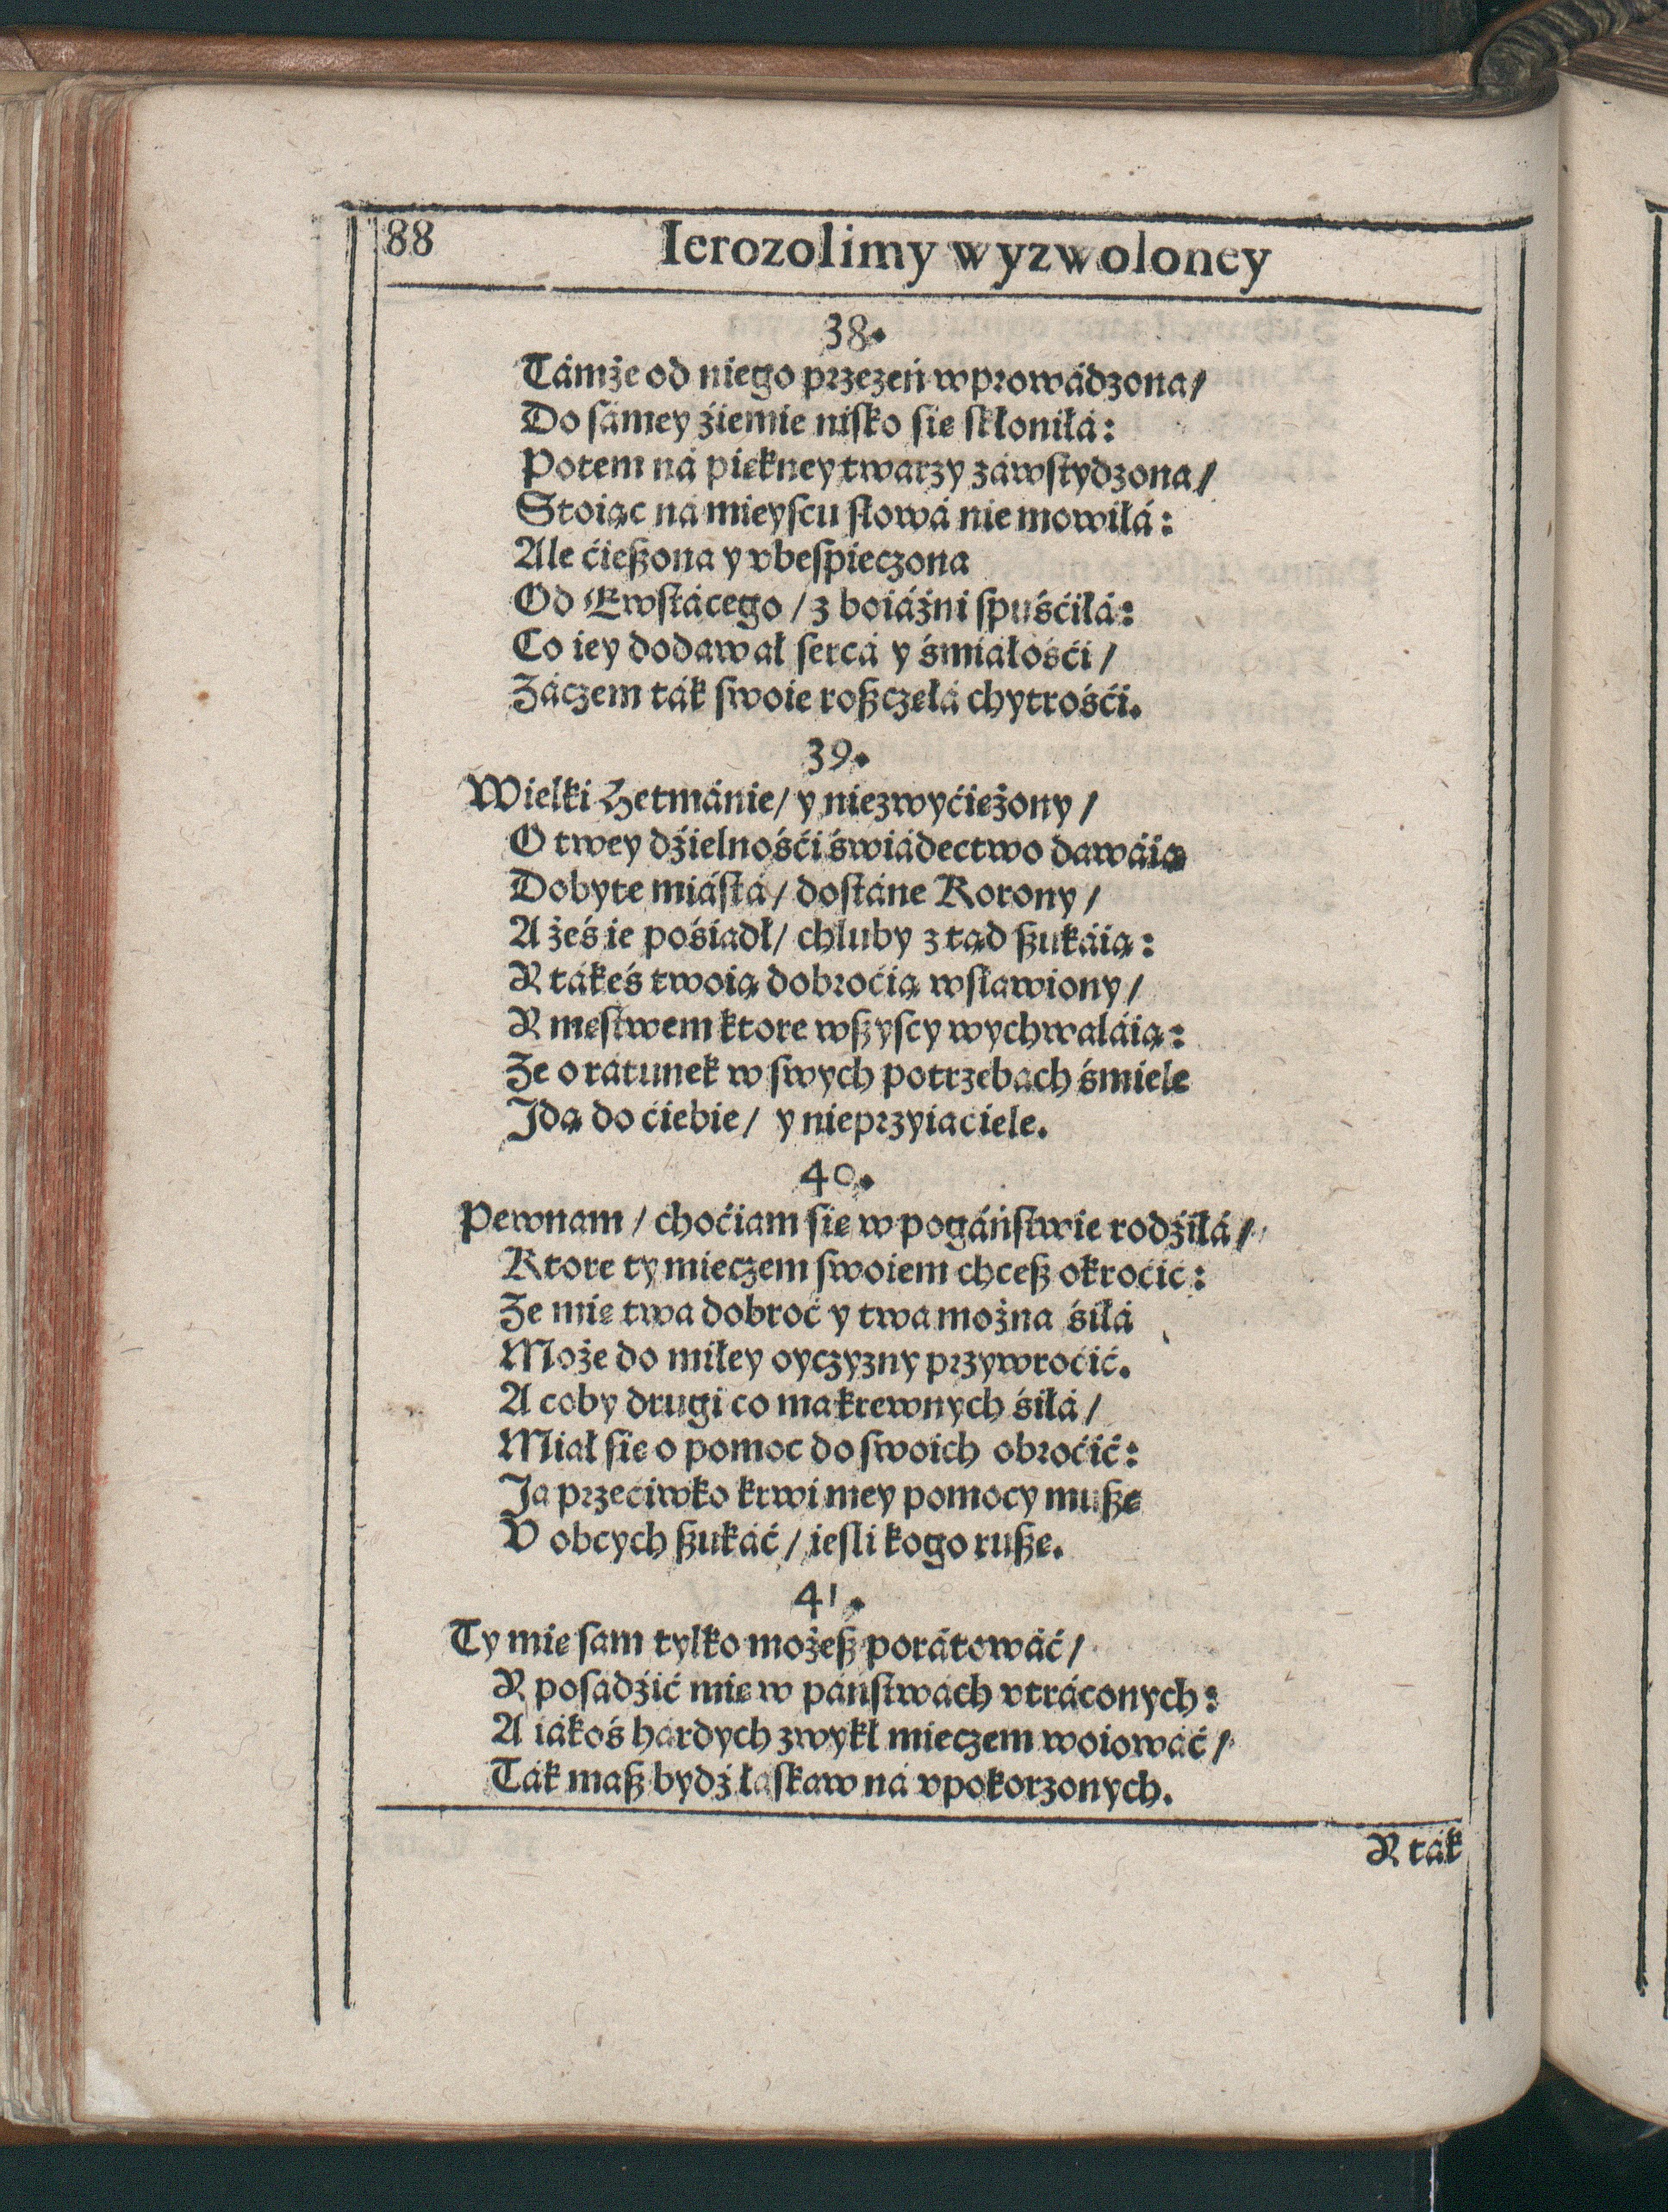 88 Ierozolimy wyzwoloney
38.
Támże od niego przezeń wprowádzona/
Do sámey źiemie nisko się skłoniłá:
Potem ná piękney twarzy záwstydzona/
Stoiąc ná mieyscu słowá nie mowiłá:
Ale ćießona y vbespieczona
Od Ewstácego/ z boiáźni spuśćiłá:
Co iey dodawał sercá y śmiáłośći/
Záczem ták swoie roßczęłá chytrośći.
39.
Wielki Hetmánie/ y niezwyćiężony/
O twey dźielnośći świádectwo dawáią
Dobyte miástá/ dostáne Korony/
A żeś ie pośiadł/ chluby z tąd ßukáią:
Y tákeś twoią dobroćią wsławiony/
Y męstwem ktore wßyscy wychwaláią:
Ze o rátunek w swych potrzebach śmiele
Idą do ćiebie/ y nieprzyiaćiele.
40.
Pewnam/ choćiam się w pogáństwie rodźiłá/
Ktore ty mieczem swoiem chceß okroćić:
Ze mię twa dobroć y twa można śiłá
Może do miłey oyczyzny przywroćić.
A coby drugi co ma krewnych śiłá/
Miał się o pomoc do swoich obroćić:
Ja przećiwko krwi mey pomocy mußę
V obcych ßukáć/ iesli kogo rußę.
41.
Ty mię sam tylko możeß porátowáć/
Y posadźić mię w páństwách vtráconych:
A iákoś hárdych zwykł mieczem woiowáć/
Ták maß bydź łaskaw ná vpokorzonych.
Y ták